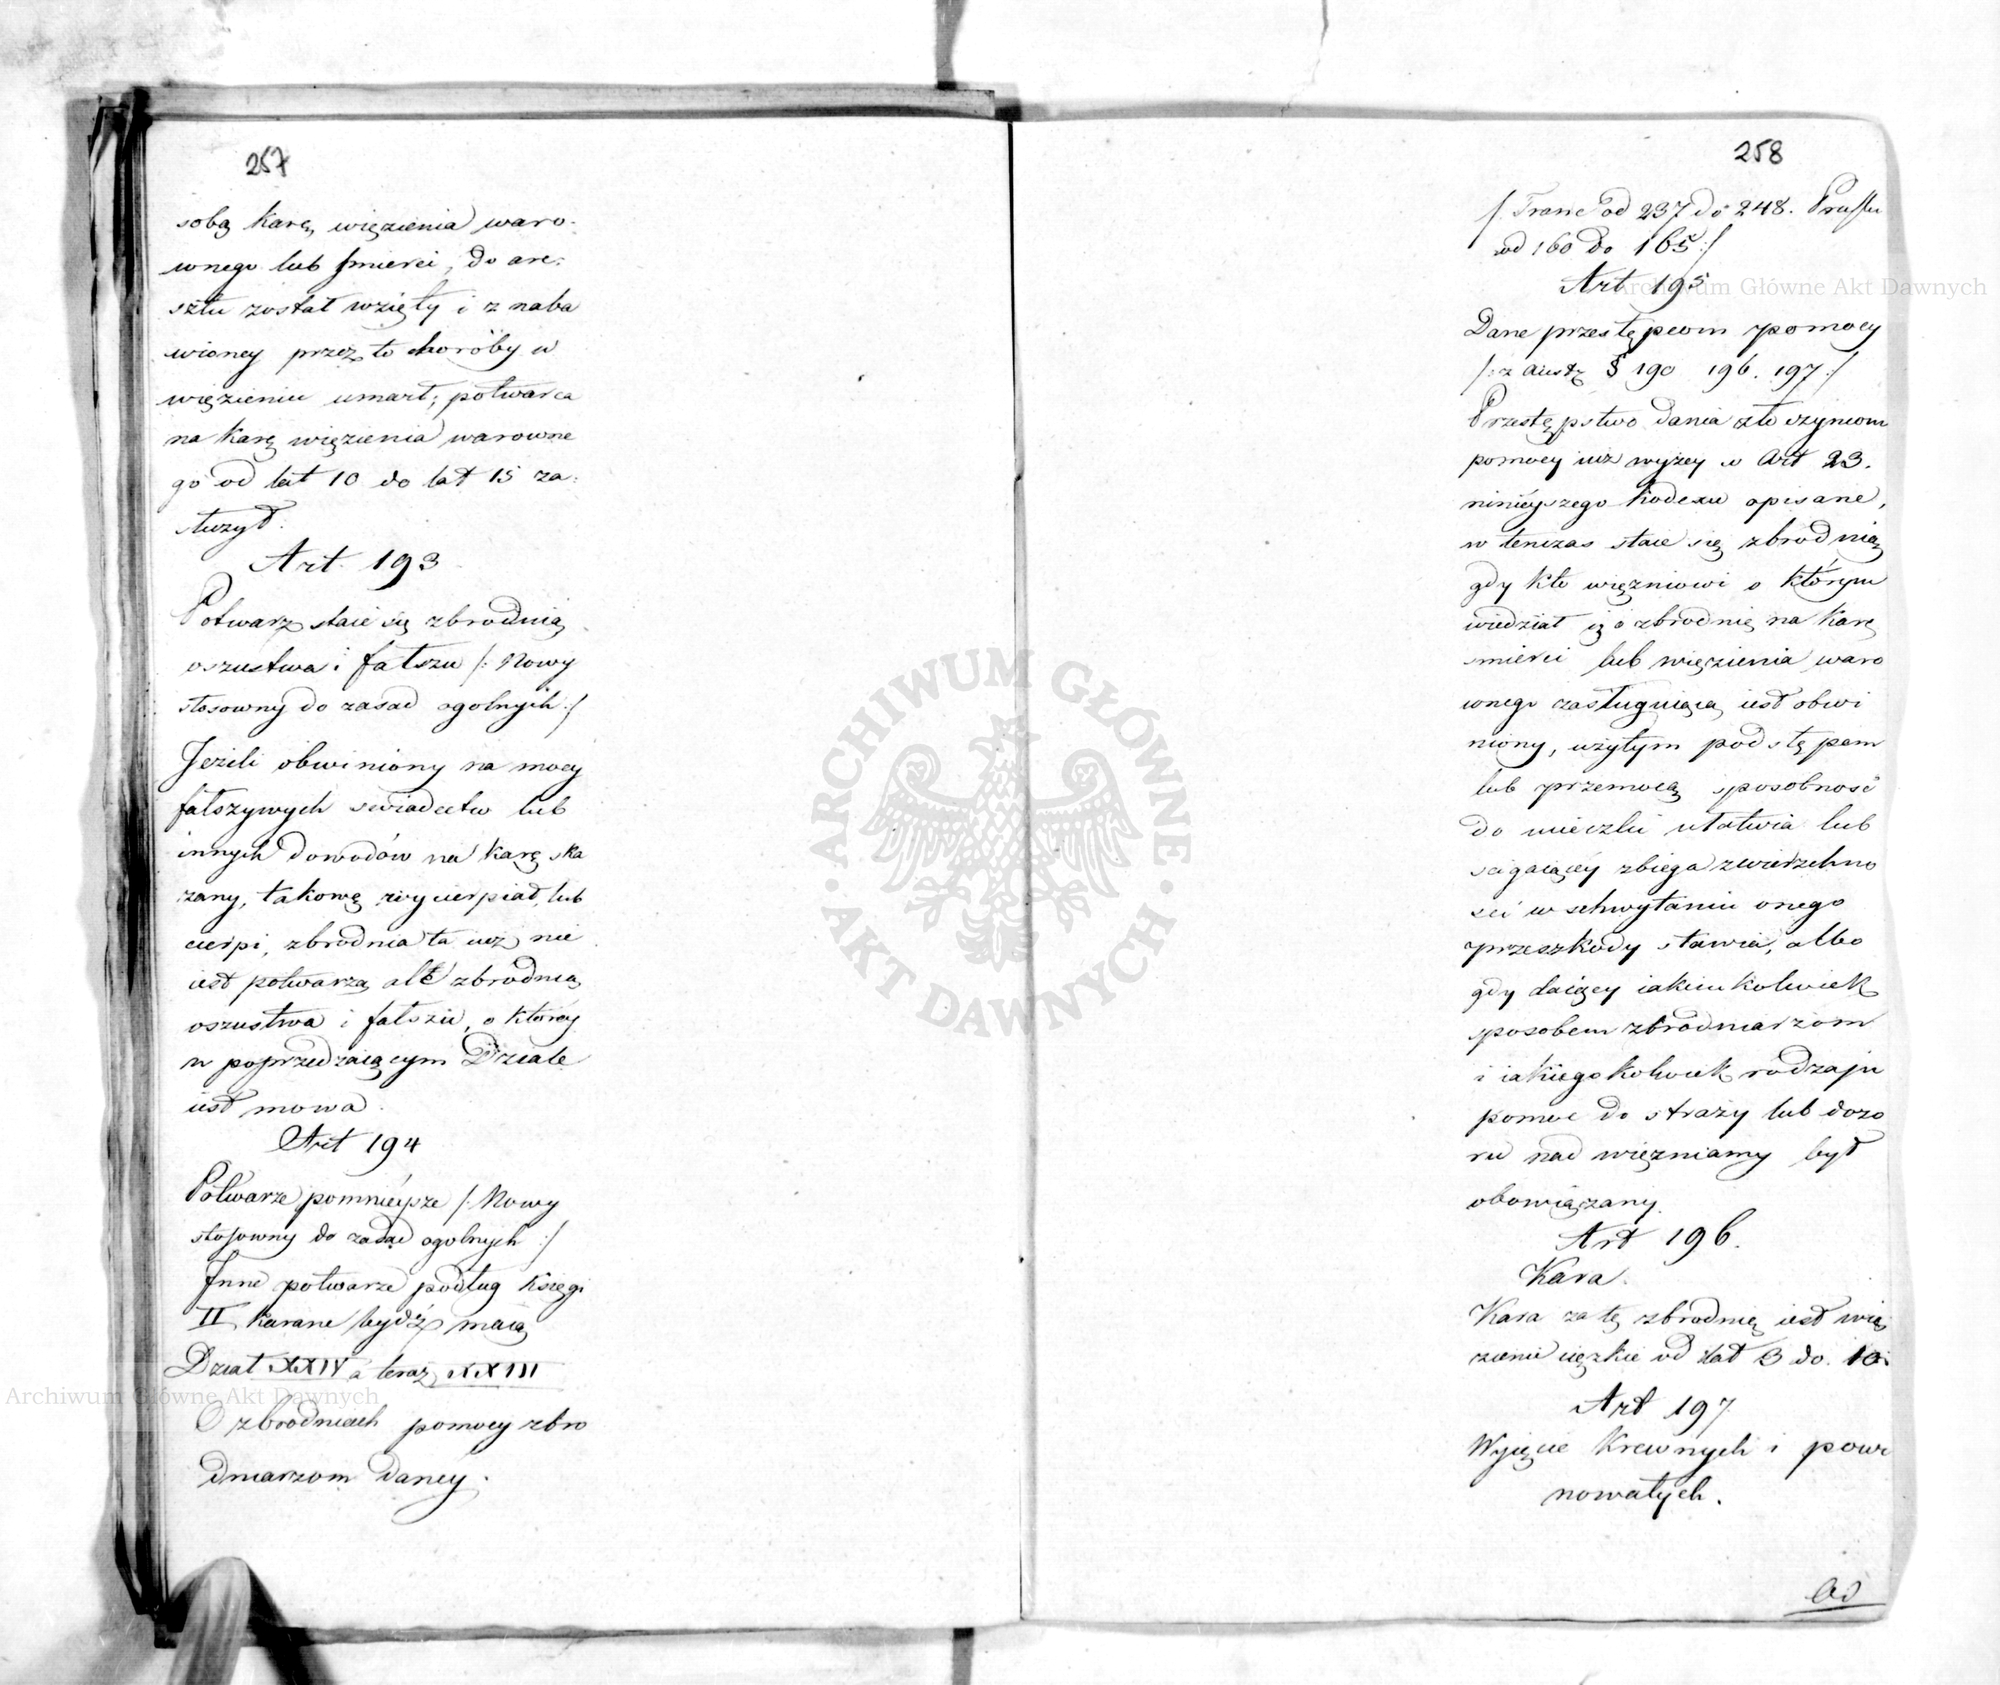 257
sobą karę więzienia waro-
wnego lub smierci, do are-
sztu został wzięty i z naba
wioney przez to choróby w
więzieniu umarł; potwarca
na karę więzienia warowne
go od lat 10 do lat 15 za-
służył.
Art. 193
Potwarz staie się zbrodnią
oszustwa i fałszu /: Nowy
stosowny do zasad ogolnych :/
Jeżeli obwiniony na mocy
fałszywych swiadectw lub
innych dowodów na karę ska
zany, takową wycierpiał, lub
cierpi, zbrodnia ta iuż nie
iest potwarzą ale zbrodnią
oszustwa i fałszu, o którey
w poprzedzaiącym Dziale
iest mowa.
Art 194
Potwarze pomnieysze /: Nowy
stosowny do zasad ogolnych :/
Inne potwarze podług Księgi
II karane bydź maią
Dział XXIV a teraz XXIII
O zbrodniach pomocy zbro
dniarzom daney.
258
/: Franc od 237 do 248. Prusku
od 160 do 165 :/
Art 195
Dane przestępcom pomocy
/: z Austr § 190 196. 197 :/
Przestępstwo dania złoczyńcom
pomocy iuż wyżey w Art 23.
ninieyszego Kodexu opisane,
w tenczas staie się zbrodnią
gdy kto więzniowi o którym
wiedział iż o zbrodnię na karę
smierci lub więzienia waro
wnego zasługuiącą iest obwi
niony, użytym podstępem
lub przemocą sposobność
do ucieczki ułatwia lub
scigaiącey zbiega zwierzchno
sci w schwytaniu onego
przeszkody stawia, albo
gdy daiący iakimkolwiek
sposobem zbrodniarzom
i iakiegokolwiek rodzaju
pomoc do straży lub dozo
ru nad więzniamy był
obowiązany.
Art 196.
Kara.
Kara za tę zbrodnię iest wię
zienie cięzkie od lat 3 do 10.
Art 197
Wyięcie Krewnych i powi
nowatych.
Ad
Archiwum Główne Akt Dawnych
ARCHIWUM GŁÓWNE
AKT DAWNYCH
Archiwum Główne Akt Dawnych